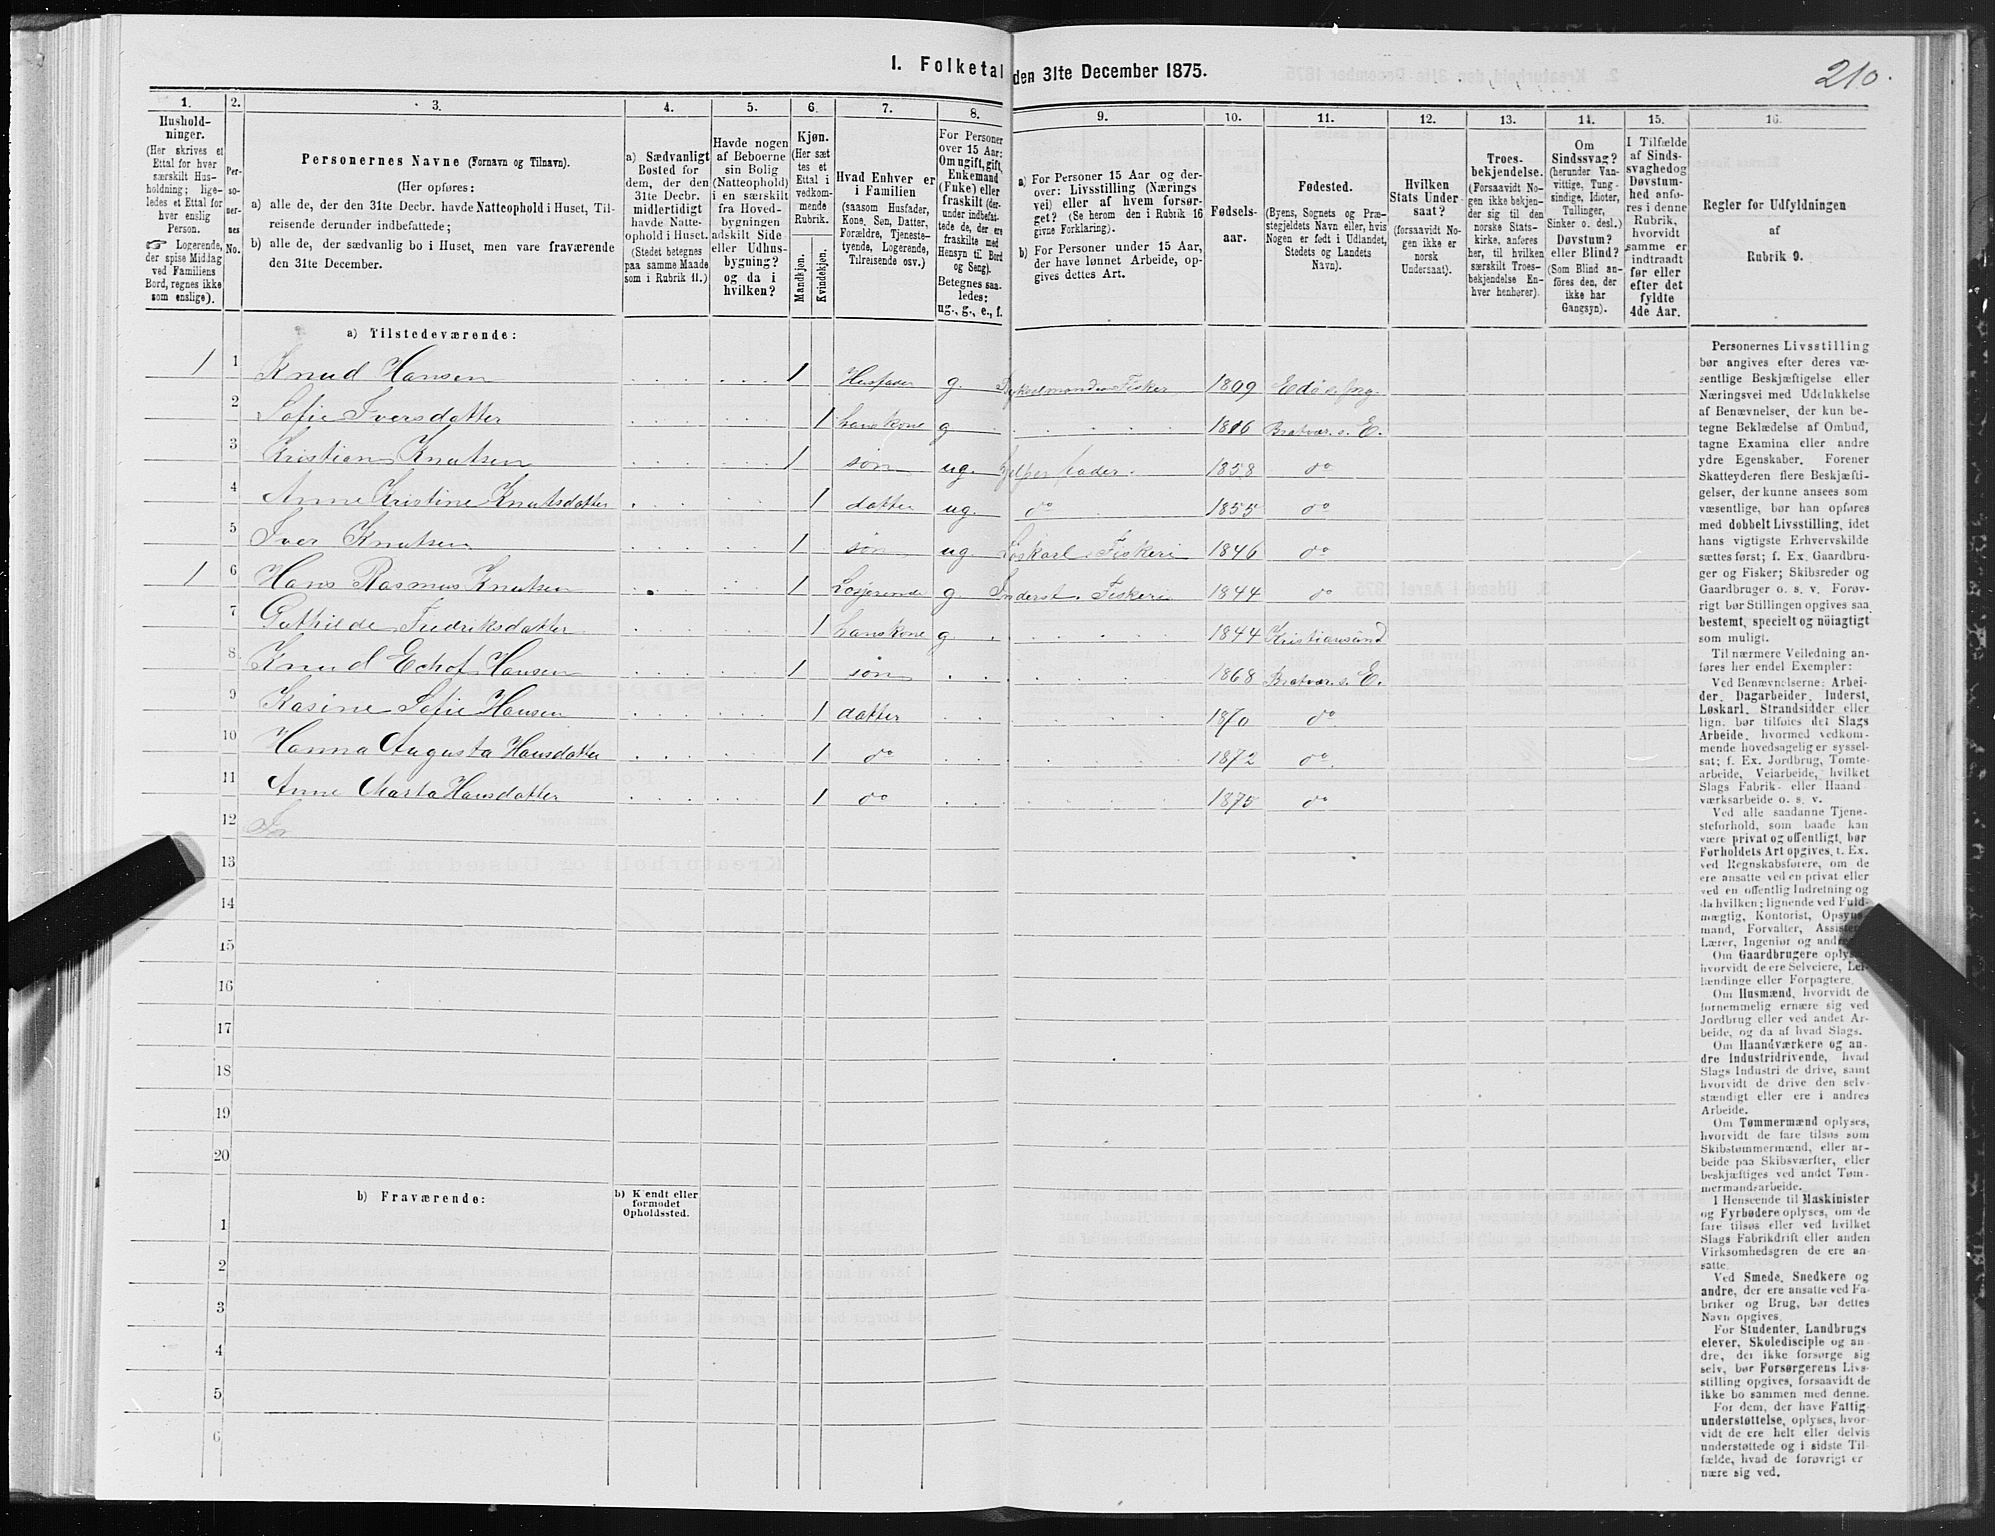 I. Folketal den 31te December 1875.
210.
1.
Husholdninger.
(Her skrives et
Ettal for hver
særskilt Husholdning;
ligeledes et Ettal for
hver enslig
Person.
☞ Logerende,
der spise Middag
ved Familiens
Bord, regnes ikke
som enslige).
2.
Personernes
No.
3.
Personernes Navne (Fornavn og Tilnavn).
(Her opføres:
a) alle de, der den 31te Decbr. havde Natteophold i Huset, Tilreisende
derunder indbefattede;
b) alle de, der sædvanlig bo i Huset, men vare fraværende
den 31te December.
4.
a) Sædvanligt
Bosted for
dem, der den
31te Decbr.
midlertidigt
havde Natteophold
i Huset.
(Stedet betegnes
paa samme Maade
som i Rubrik 11.)
5.
Havde nogen
af Beboerne
sin Bolig
(Natteophold)
i en særskilt
fra Hovedbygningen
adskilt Side
eller Udhusbygning?
og da i
hvilken?
6.
Kjøn.
(Her sættes
et
Ettal i
vedkommende
Rubrik.
Mandkjøn.
Kvindekjøn.
7.
Hvad Enhver er
i Familien
(saasom Husfader,
Kone, Søn, Datter,
Forældre, Tjenestetyende,
Logerende,
Tilreisende osv.)
8.
For Personer
over 15 Aar:
Om ugift, gift,
Enkemand
(Enke) eller
fraskilt (derunder
indbefattede
de, der ere
fraskilte med
Hensyn til Bord
og Seng).
Betegnes saaledes:
ug., g., e., f.
9.
a) For Personer 15 Aar og derover:
Livsstilling (Næringsvei)
eller af hvem forsørget?
(Se herom den i Rubrik 16
givne Forklaring).
b) For Personer under 15 Aar,
der have lønnet Arbeide, opgives
dettes Art.
10.
Fødselsaar.
11.
Fødested.
(Byens, Sognets og Præstegjeldets
Navn eller, hvis
Nogen er født i Udlandet,
Stedets og Landets
Navn).
12.
Hvilken
Stats Undersaat?
(forsaavidt Nogen
ikke er
norsk
Undersaat).
13.
Troesbekjendelse.
(Forsaavidt Nogen
ikke bekjender
sig til den
norske Statskirke,
anføres
her, til hvilken
særskilt Troesbekjendelse
Enhver
henhører).
14.
Om
Sindssvag?
(herunder Vanvittige,
Tungsindige,
Idioter,
Tullinger,
Sinker o. desl.)
Døvstum?
eller Blind?
(Som Blind anføres
den, der
ikke har
Gangsyn).
15.
I Tilfælde
af Sindssvaghed
og
Døvstumhed
anføres
i denne
Rubrik,
hvorvidt
samme er
indtraadt
før eller
efter det
fyldte
4de Aar.
16.
Regler for Udfyldningen
af
Rubrik 9.
a) Tilstedeværende:
1 1 Knud Hansen 1 Husfader g. Fisker 1809 Edö s. prg.
2 Sofie Iversdatter 1 hans kone g 1816 Bratvær s. E.
3 Kristian Knutsen 1 søn ug. hjelper fader. 1858 do
4 Anne Kristine Knutsdatter 1 datter ug. do 1855 do
5 Iver Knutsen 1 søn ug Løskarl. Fiskeri 1846 do
1 6 Hans Rasmus Knutsen 1 Losjerende g Inderst. Fiskeri 1844 do
7 Guthilde Fredriksdatter 1 hans kone g. 1844 Kristiansund
8 Knud Echof Hansen 1 søn 1868 Bratvær s. E.
9 Kasine Sofie Hansen 1 datter 1870 do
10 Hanna Augusta Hansdatter 1 do 1872 do.
11 Anne Marta Hansdatter 1 do 1875 do
12
13
14
15
16
17
18
19
20
b) Fraværende:
b) Kendt eller
formodet
Opholdssted.
1
2
3
4
5
6
Personernes Livsstilling
bør angives efter deres væsentlige
Beskjæftigelse eller
Næringsvei med Udelukkelse
af Benævnelser, der kun betegne
Beklædelse af Ombud,
tagne Examina eller andre
ydre Egenskaber. Forener
Skatteyderen flere Beskjæftigelser,
der kunne ansees som
væsentlige, bør han opføres
med dobbelt Livsstilling, idet
hans vigtigste Erhvervskilde
sættes først; f. Ex. Gaardbruger
og Fisker; Skibsreder og
Gaardbruger o. s. v. Forøvrigt
bør Stillingen opgives saa
bestemt, specielt og nöiagtigt
som muligt.
Til nærmere Veiledning anføres
her endel Exempler:
Ved Benævnelserne: Arbeider,
Dagarbeider, Inderst,
Løskarl, Strandsidder eller
lign. bør tilføies det Slags
Arbeide, hvormed vedkommende
hovedsagelig er sysselsat;
f. Ex. Jordbrug, Tomtearbeide,
Veiarbeide, hvilket
Slags Fabrik- eller Haandværksarbeide
o. s. v.
Ved alle saadanne Tjenesteforhold,
som baade kan
være privat og offentligt, bør
Forholdets Art opgives, t. Ex.
ved Regnskabsførere, om de
ere ansatte ved en privat eller
ved en offentlig Indretning og
da hvilken; lignende ved Fuldmægtig,
Kontorist, Opsynsmand,
Forvalter,
Lærer, Ingeniør og
Om Gaardbrugere
hvorvidt de ere Selveiere, Leilændinge
eller Forpagtere.
Om Husmænd, hvorvidt de
fornemmelig ernære sig ved
Jordbrug eller ved andet Arbeide,
og da af hvad Slags.
Om Haandværkere og andre
Industridrivende, hvad
Slags Industri de drive, samt
hvorvidt de drive den selvstændigt
eller ere i andres
Arbeide.
Om Tømmermænd oplyses,
hvorvidt de fare tilsøs som
Skibstømmermænd, eller arbeide
paa Skibsværfter, eller
beskjæftiges ved andet Tømmermandsarbeide.
I Henseende til Maskinister
og Fyrbødere oplyses, om de
fare tilsøs eller ved hvilket
Slags Fabrikdrift eller anden
Virksomhedsgren de ere ansatte.
Ved Smede, Snedkere og
andre, der ere ansatte ved Fabriker
og Brug, bør dettes
Navn opgives.
For Studenter, Landbrugselever,
Skoledisciple og andre,
der ikke forsørge sig
selv, bør Forsørgerens Livsstilling
opgives, forsaavidt de
ikke bo sammen med denne.
For dem, der have Fattigunderstøttelse,
oplyses, hvorvidt
de ere helt eller delvis
understøttede og i sidste Tilfælde,
hvad de forøvrigt er
nære sig ved.